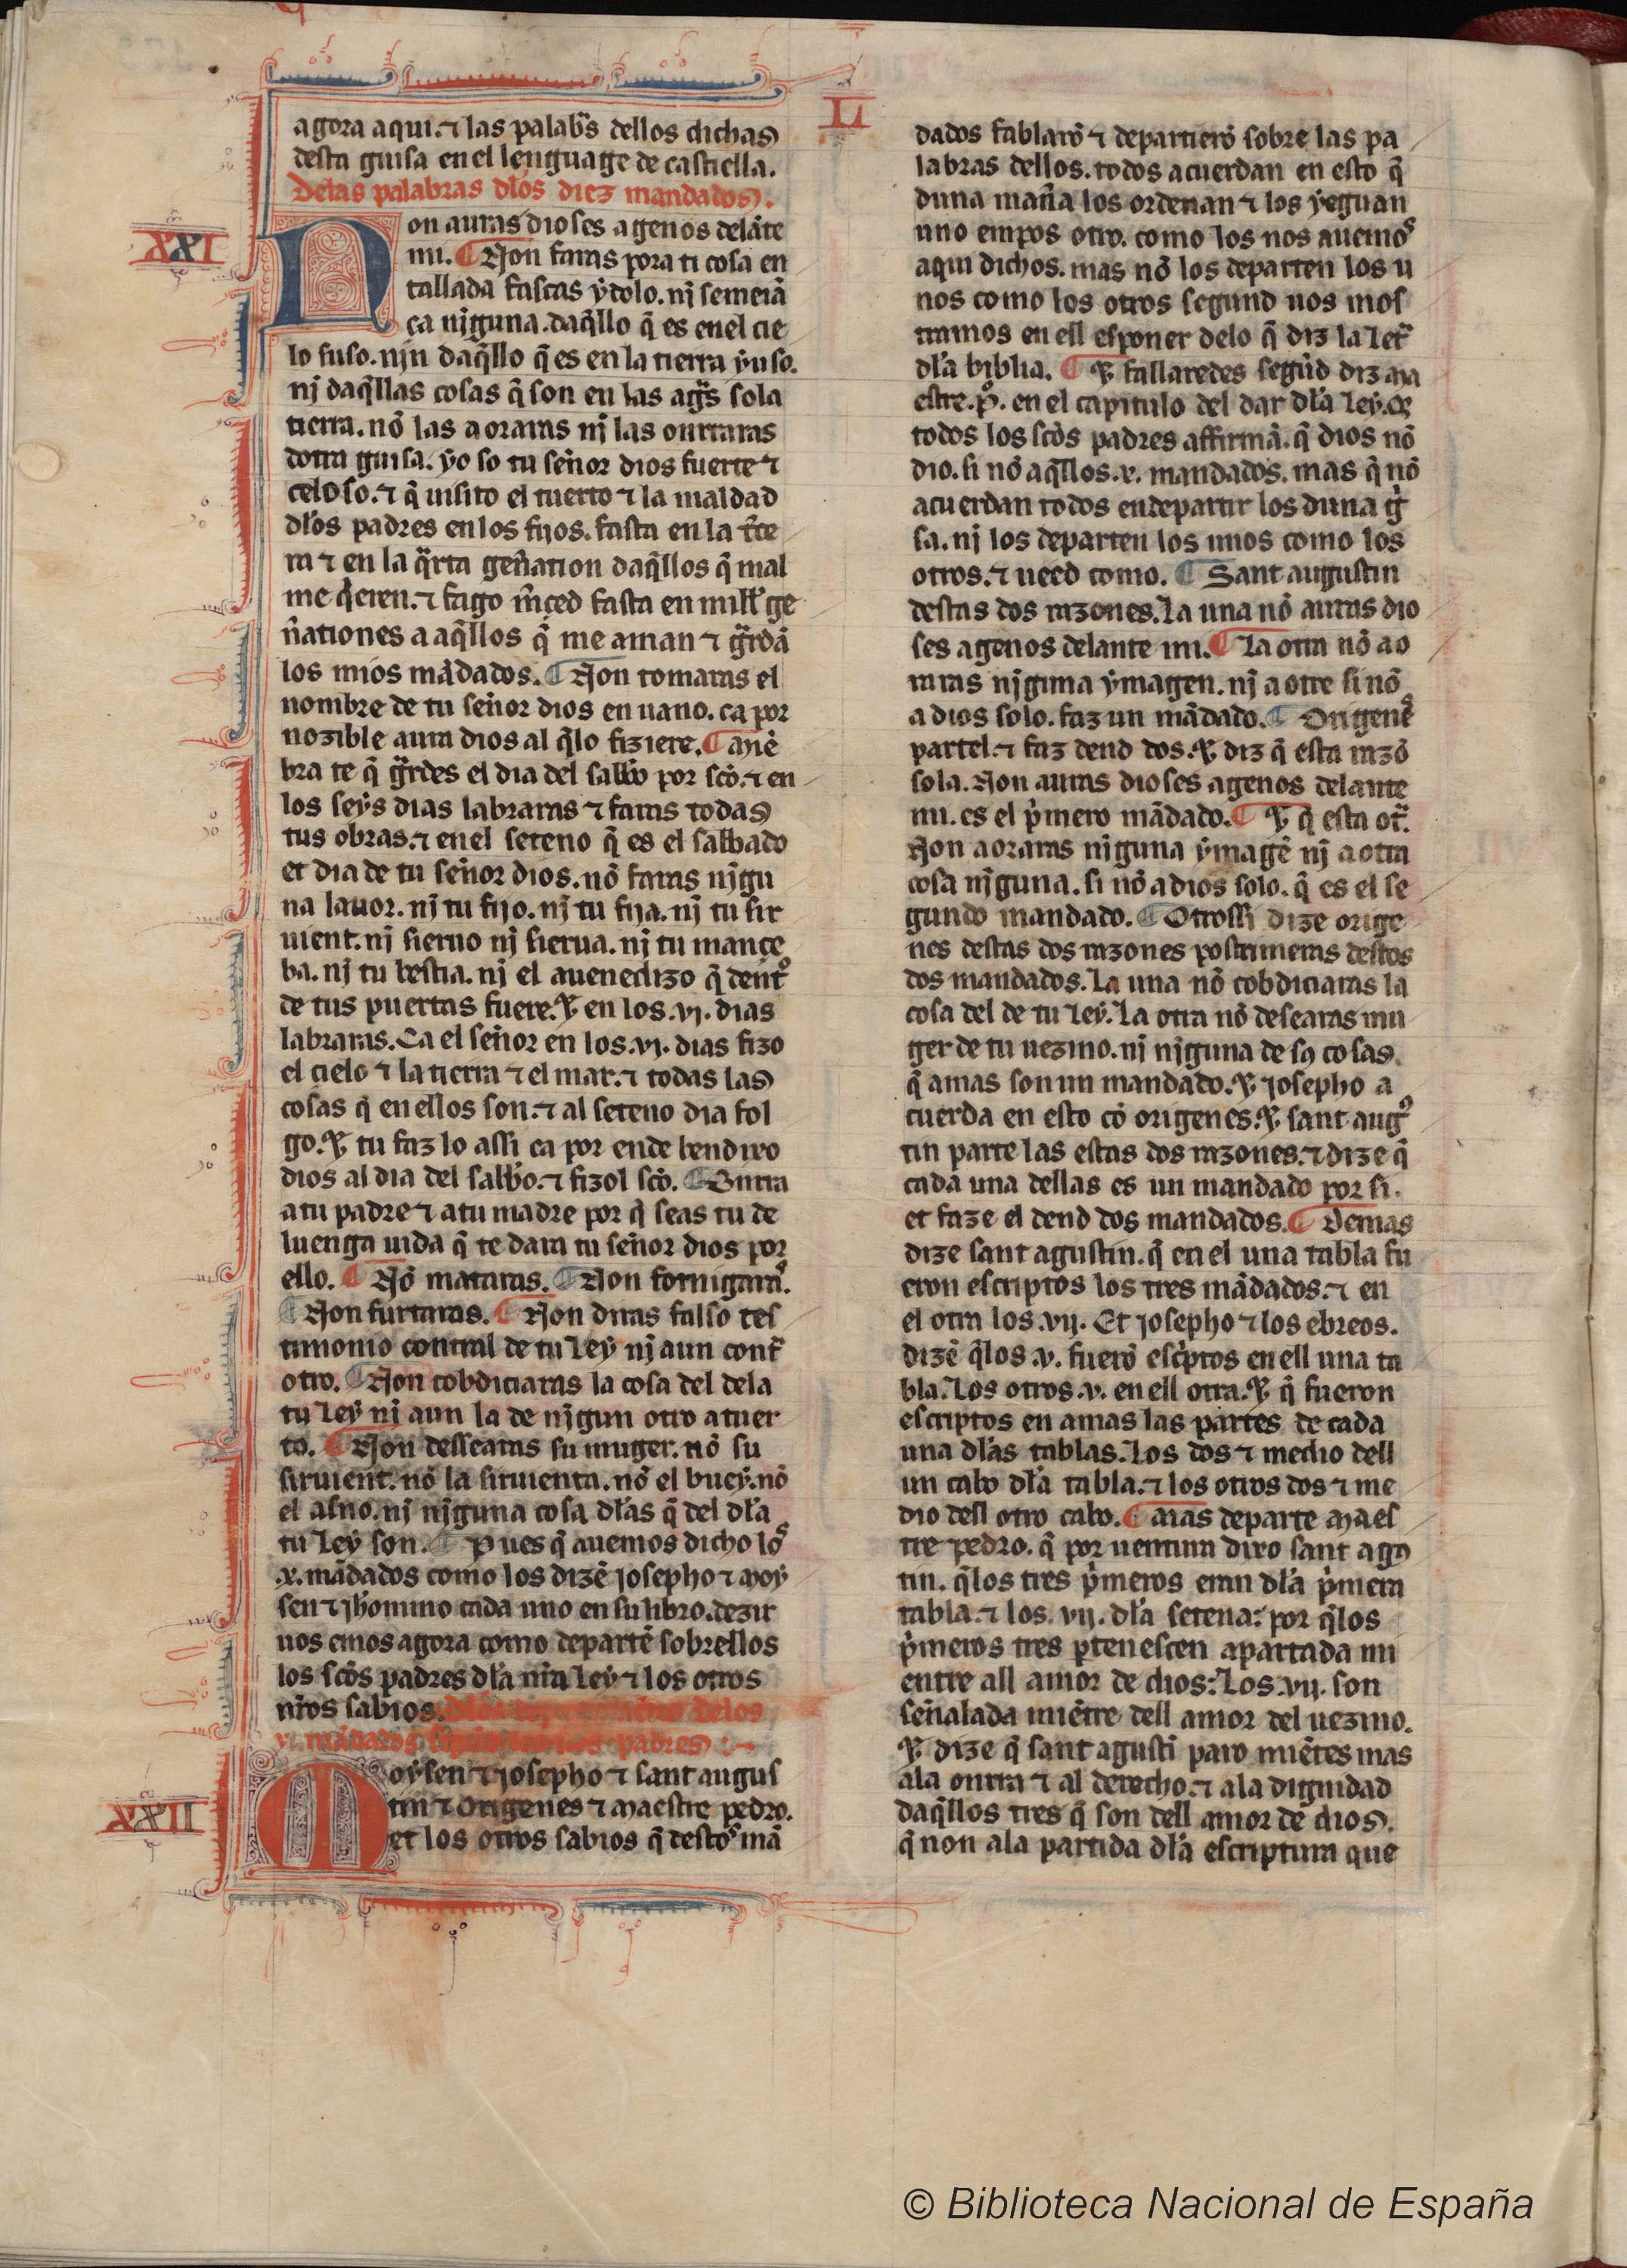 L
agora aqui. ⁊ las palabras dellos dichas
desta guisa en el lenguage de castiella.
Delas palabras dlos diez mandados.
XXI
Non auras dioses agenos delãte
mi. ¶ Non faras pora ti cosa en
tallada fascas ydolo. nj semeiã
ça nj̃guna. daq̃llo q̃ es enel cie
lo suso. njn daq̃llo q̃ es en la tierra yuso.
nj daq̃llas cosas q̃ son en las ag̃s sola
tierra. nõ las aoraras nj las onrraras
dotra guisa. yo so tu señor dios fuerte ⁊
celoso. ⁊ q̃ uisito el tuerto ⁊ la maldad
dlos padres en los fijos. fasta en la t̃ce
ra ⁊ en la q̃rta gen̄ation daq̃llos q̃ mal
me q̃ren. ⁊ fago m̃çed fasta en mill ge
n̄ationes a aq̃llos q̃ me aman ⁊ g̃rdã
los mios mãdados. ¶ Non tomaras el
nombre de tu señor dios en uano. ca por
nozible aura dios al q̃lo fiziere. ¶ Miẽ
bra te q̃ g̃rdes el dia del sabbo por scõ. ⁊ en
los seys dias labraras ⁊ faras todas
tus obras. ⁊ en el seteno q̃ es el sabbado
et dia de tu señor dios. nõ faras nj̃gu
na lauor. nj tu fijo. nj tu fija. nj tu sir
uient. nj sieruo nj sierua. nj tu mançe
ba. nj tu bestia. nj el auenedizo q̃ dent̃o
de tus puertas fuere. ⁊ en los .vj. dias
labraras. Ca el señor en los .vj. dias fizo
el cielo ⁊ la tierra ⁊ el mar. ⁊ todas las
cosas q̃ en ellos son. ⁊ al seteno dia fol
go. ⁊ tu faz lo assi ca por ende bendixo
dios al dia del sabbo. ⁊ fizol scõ. ¶ Onrra
atu padre ⁊ atu madre por q̃ seas tu de
luenga uida q̃ te dara tu señor dios por
ello. ¶ Nõ mataras. ¶ Non fornigaras.
¶ Non furtaras. ¶ Non diras falso tes
timonio contral de tu ley nj aun cont̃
otro. ¶ Non cobdiciaras la cosa del dela
tu ley nj aun la de nj̃gun otro a tuer
to. ¶ Non dessearas su muger. nõ su
siruient. nõ la siruienta. nõ el buey. nõ
el asno. nj nj̃guna cosa dlas q̃ del dla
tu ley son. ¶ Pues q̃ auemos dicho los
.x. mãdados como los dizẽ josepho ⁊ moy
sen ⁊ jheronimo cada uno en su libro. dezir
uos emos agora como departẽ sobrellos
los scõs padres dla nr̃a ley ⁊ los otros
nr̃os sabios. delos
x. mãdados padres :~
XXII
Moysen ⁊ josepho ⁊ sant augus
tin ⁊ Origenes ⁊ maestre pedro.
et los otros sabios q̃ destos mã
dados fablarõ ⁊ departierõ sobre las pa
labras dellos. todos acuerdan en esto q̃
duna man̄a los ordenan ⁊ los yeguan
uno empos otro. como los nos auemos
aqui dichos. mas nõ los departen los u
nos como los otros segund uos mos
tramos en ell esponer delo q̃ diz la let̃
dla biblia. ¶ ⁊ fallaredes segũd diz ma
estre .p̃. en el capitulo del dar dla ley. q̃
todos los scõs padres affirmã. q̃ dios nõ
dio. si nõ aq̃llos .x. mandados. mas q̃ nõ
acuerdan todos endepartir los duna g̃
sa. nj los departen los unos como los
otros. ⁊ ueed como. ¶ Sant augustin
destas dos razones. La una nõ auras dio
ses agenos delante mi. ¶ La otra nõ ao
raras nj̃guna ymagen. nj a otre si nõ
a dios solo. faz un mãdado. ¶ Origenes
partel. ⁊ faz dend dos. ⁊ diz q̃ esta razõ
sola. Non auras dioses agenos delante
mi. es el p̃mero mãdado. ¶ ⁊ q̃ esta ot̃.
Non aoraras nj̃guna ymagẽ nj a otra
cosa nj̃guna. si nõ a dios solo. q̃ es el se
gundo mandado. ¶ Otrossi dize orige
nes destas dos razones postrimeras destos
dos mandados. La una nõ cobdiciaras la
cosa del de tu ley. La otra nõ desearas mu
ger de tu uezino. nj nj̃guna de sus cosas.
q̃ amas son un mandado. ⁊ josepho a
cuerda en esto cõ origenes. ⁊ sant aug̃s
tin parte las estas dos razones. ⁊ dize q̃
cada una dellas es un mandado por si.
et faze el dend dos mandados. ¶ Demas
dize sant agustin. q̃ en el una tabla fu
eron escriptos los tres mãdados. ⁊ en
el otra los .vij. Et josepho ⁊ los ebreos.
dizẽ q̃los .v. fuerõ esc̃ptos en ell una ta
bla. Los otros .v. en ell otra. ⁊ q̃ fueron
escriptos en amas las partes de cada
una dlas tablas. Los dos ⁊ medio dell
un cabo dla tabla. ⁊ los otros dos ⁊ me
dio dell otro cabo. ¶ Mas departe maes
tre pedro. q̃ por uentura dixo sant agus
tin. q̃los tres p̃meros eran dla p̃mera
tabla. ⁊ los .vij. dla setena: por q̃los
p̃meros tres p̃tenescen apartada mi
entre all amor de dios: Los .vij. son
señalada miẽtre dell amor del uezino.
⁊ dize q̃ sant agusti paro miẽtes mas
ala onrra ⁊ al derecho. ⁊ ala dignidad
daq̃llos tres q̃ son dell amor de dios.
q̃ non ala partida dla escriptura que
© Biblioteca Nacional de España